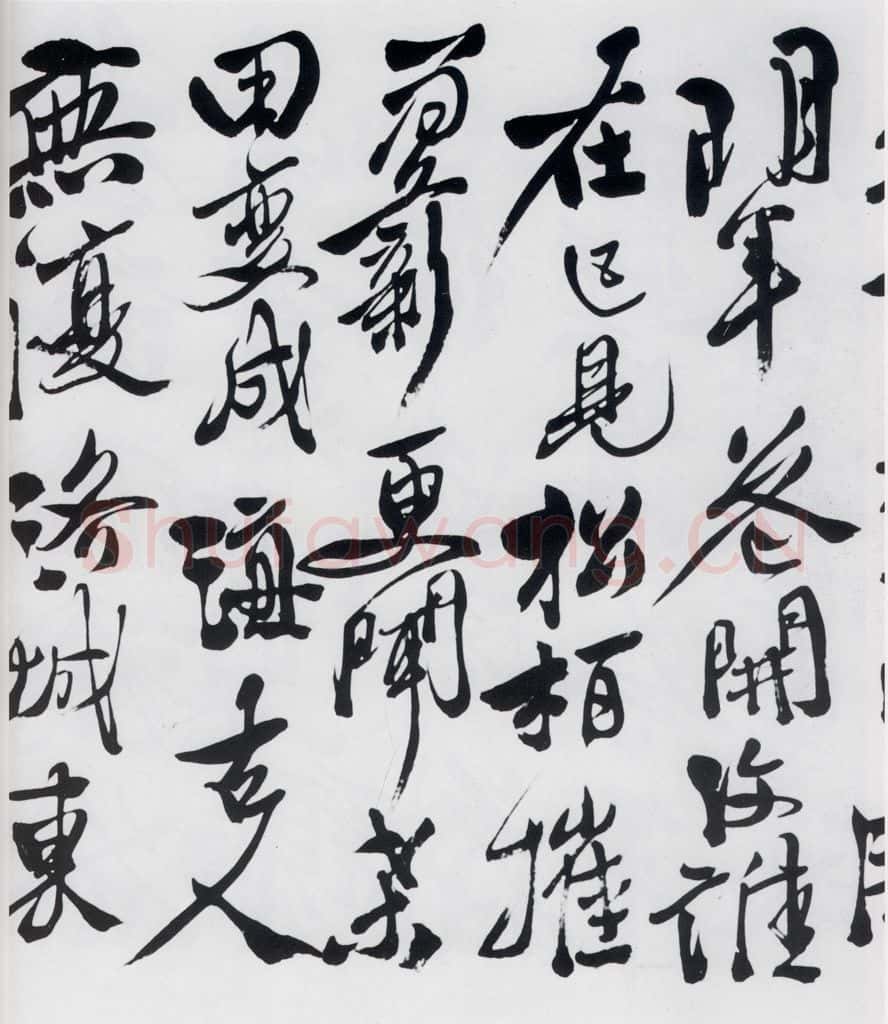 明年花開復誰
在已見松柏摧
為薪更聞桒
田變成海古人
無復洛城東
Shufawang.CN